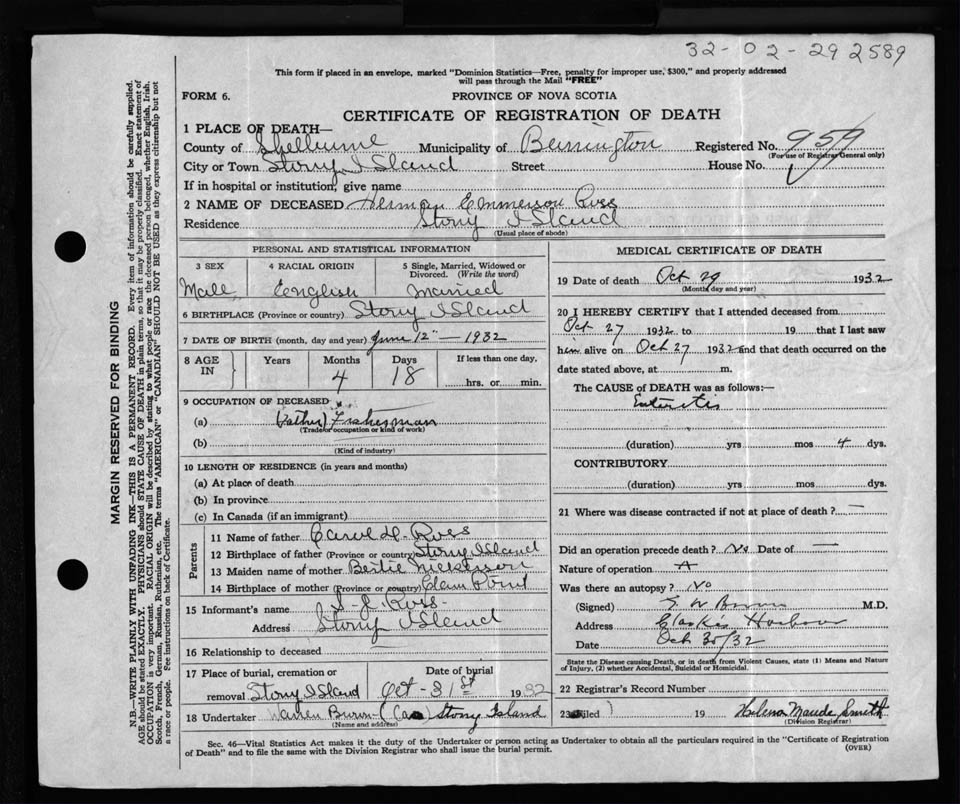 32-02-29 2589
This form if placed in an envelope, marked "Dominion Statistics—Free, penalty for improper use, $300," and properly addressed
will pass through the Mail "FREE"
FORM 6.
PROVINCE OF NOVA SCOTIA
CERTIFICATE OF REGISTRATION OF DEATH
1 PLACE OF DEATH—
County of Shelburne Municipality of Barrington Registered No. 959
(For use of Registrar General only)
City or Town Stony Island Street House No.
If in hospital or institution, give name
2 NAME OF DECEASED Herman Emmerson Ross
Residence Stony Island
(Usual place of abode)
PERSONAL AND STATISTICAL INFORMATION
3 SEX
Male
4 RACIAL ORIGIN
English
5 Single, Married, Widowed or
Divorced. (Write the word)
Married
6 BIRTHPLACE (Province or country) Stony Island
7 DATE OF BIRTH (month, day and year) June 12th — 1932
8 AGE IN
Years
Months
4
Days
18
If less than one day,
hrs. or min.
9 OCCUPATION OF DECEASED
(a) (Father) Fisherman
(Trade or occupation or kind of work)
(b)
(Kind of industry)
10 LENGTH OF RESIDENCE (in years and months)
(a) At place of death
(b) In province
(c) In Canada (if an immigrant)
Parents
11 Name of father H. Ross
12 Birthplace of father (Province or country) Stony Island
13 Maiden name of mother Bertie Nickerson
14 Birthplace of mother (Province or country) Clam Point
15 Informant's name Ross
Address Stony Island
16 Relationship to deceased —
17 Place of burial, cremation or
removal Stony Island
Date of burial
Oct- 31st 1932
18 Undertaker Warren Stony Island
(Name and address)
MEDICAL CERTIFICATE OF DEATH
19 Date of death Oct 29 1932
(Month, day and year)
20 I HEREBY CERTIFY that I attended deceased from
Oct 27 1932 to 19 that I last saw
him alive on Oct 27 1932 and that death occurred on the
date stated above, at m.
The CAUSE of DEATH was as follows:—
Enteritis
(duration) yrs mos 4 dys.
CONTRIBUTORY
(duration) yrs mos dys.
21 Where was disease contracted if not at place of death? —
Did an operation precede death? No Date of —
Nature of operation
Was there an autopsy? No
(Signed) M.D.
Address Clarks Harbour
Date Oct 30/32
State the Disease causing Death, or in death from Violent Causes, state (1) Means and Nature
of Injury, (2) whether Accidental, Suicidal or Homicidal.
22 Registrar's Record Number
23 Filed 19 Helena Maude Smith
(Division Registrar)
Sec. 46—Vital Statistics Act makes it the duty of the Undertaker or person acting as Undertaker to obtain all the particulars required in the "Certificate of Registration
of Death" and to file the same with the Division Registrar who shall issue the burial permit.
(OVER)
MARGIN RESERVED FOR BINDING
N.B.—WRITE PLAINLY WITH UNFADING INK—THIS IS A PERMANENT RECORD. Every item of information should be carefully supplied.
AGE should be stated EXACTLY. PHYSICIANS should STATE CAUSE OF DEATH in plain terms, so that it may be properly classified. Exact statement of
OCCUPATION is very important. RACIAL ORIGIN will be described by stating to what people or race the deceased person belonged, whether English, Irish,
Scotch, French, German, Russian, Ruthenian, etc. The terms "AMERICAN" or "CANADIAN" SHOULD NOT BE USED as they express citizenship but not
a race or people. See instructions on back of Certificate.